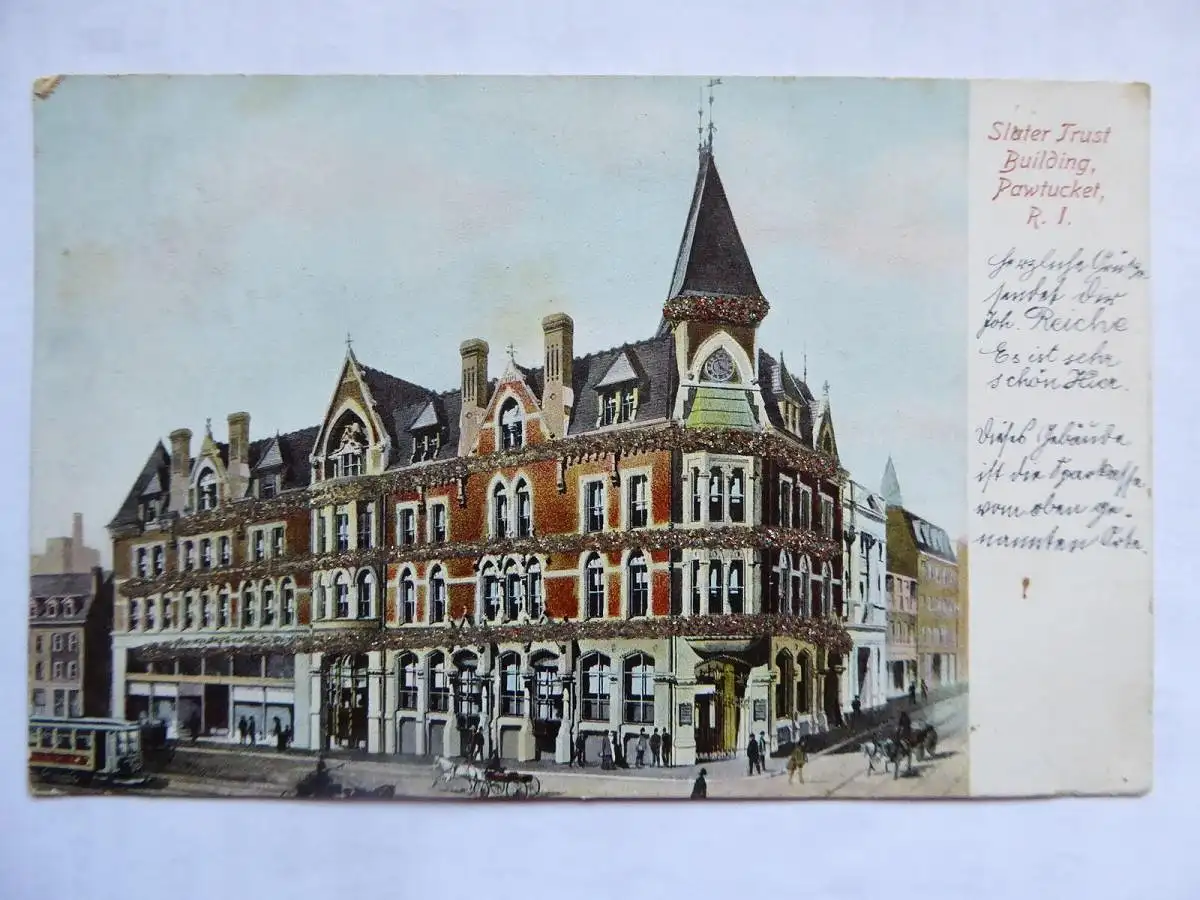 Slater Trust
Building,
Pawtucket,
R. I.
Herzliche Grüße
sendet dir
Joh. Reiche
Es ist sehr
schön Hier.
Dieses Gebäude
ist die Sparkasse
vom oben ge-
nannten Orte.